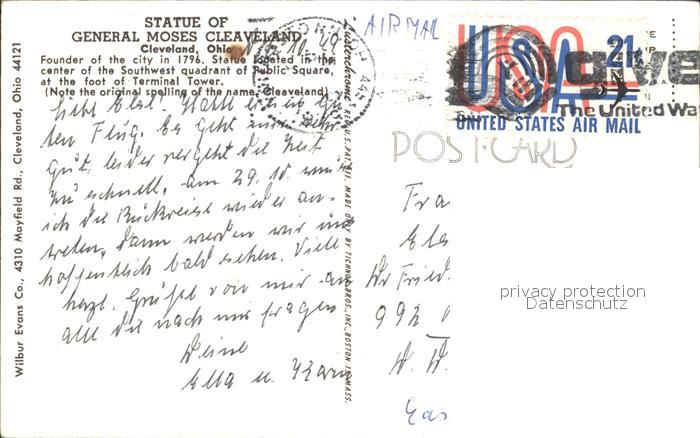 STATUE OF
GENERAL MOSES CLEAVELAND
Cleveland, Ohio
Founder of the city in 1796. Statue located in the
center of the Southwest quadrant of Public Square,
at the foot of Terminal Tower.
(Note the original spelling of the name, Cleaveland)
Liebe Elsl. Hatte einen gu-
ten Flug. Es geht mir sehr
gut, leider vergeht die Zeit
zu schnell, am 29.10. muß
ich die Rückreise wieder an-
treten, dann werden wir uns
hoffentlich bald sehen. Viele
herzl. Grüße von mir an
alle die nach mir fragen
Deine
Ella u.
Wilbur Evans Co., 4310 Mayfield Rd., Cleveland, Ohio 44121
MADE ONLY BY TICHNOR BROS., INC., BOSTON, MASS.
AIR MAIL
USA
21c
UNITED STATES AIR MAIL
The United Wa
POST CARD
Fra
Els
Dr Fried
992
privacy protection
Datenschutz